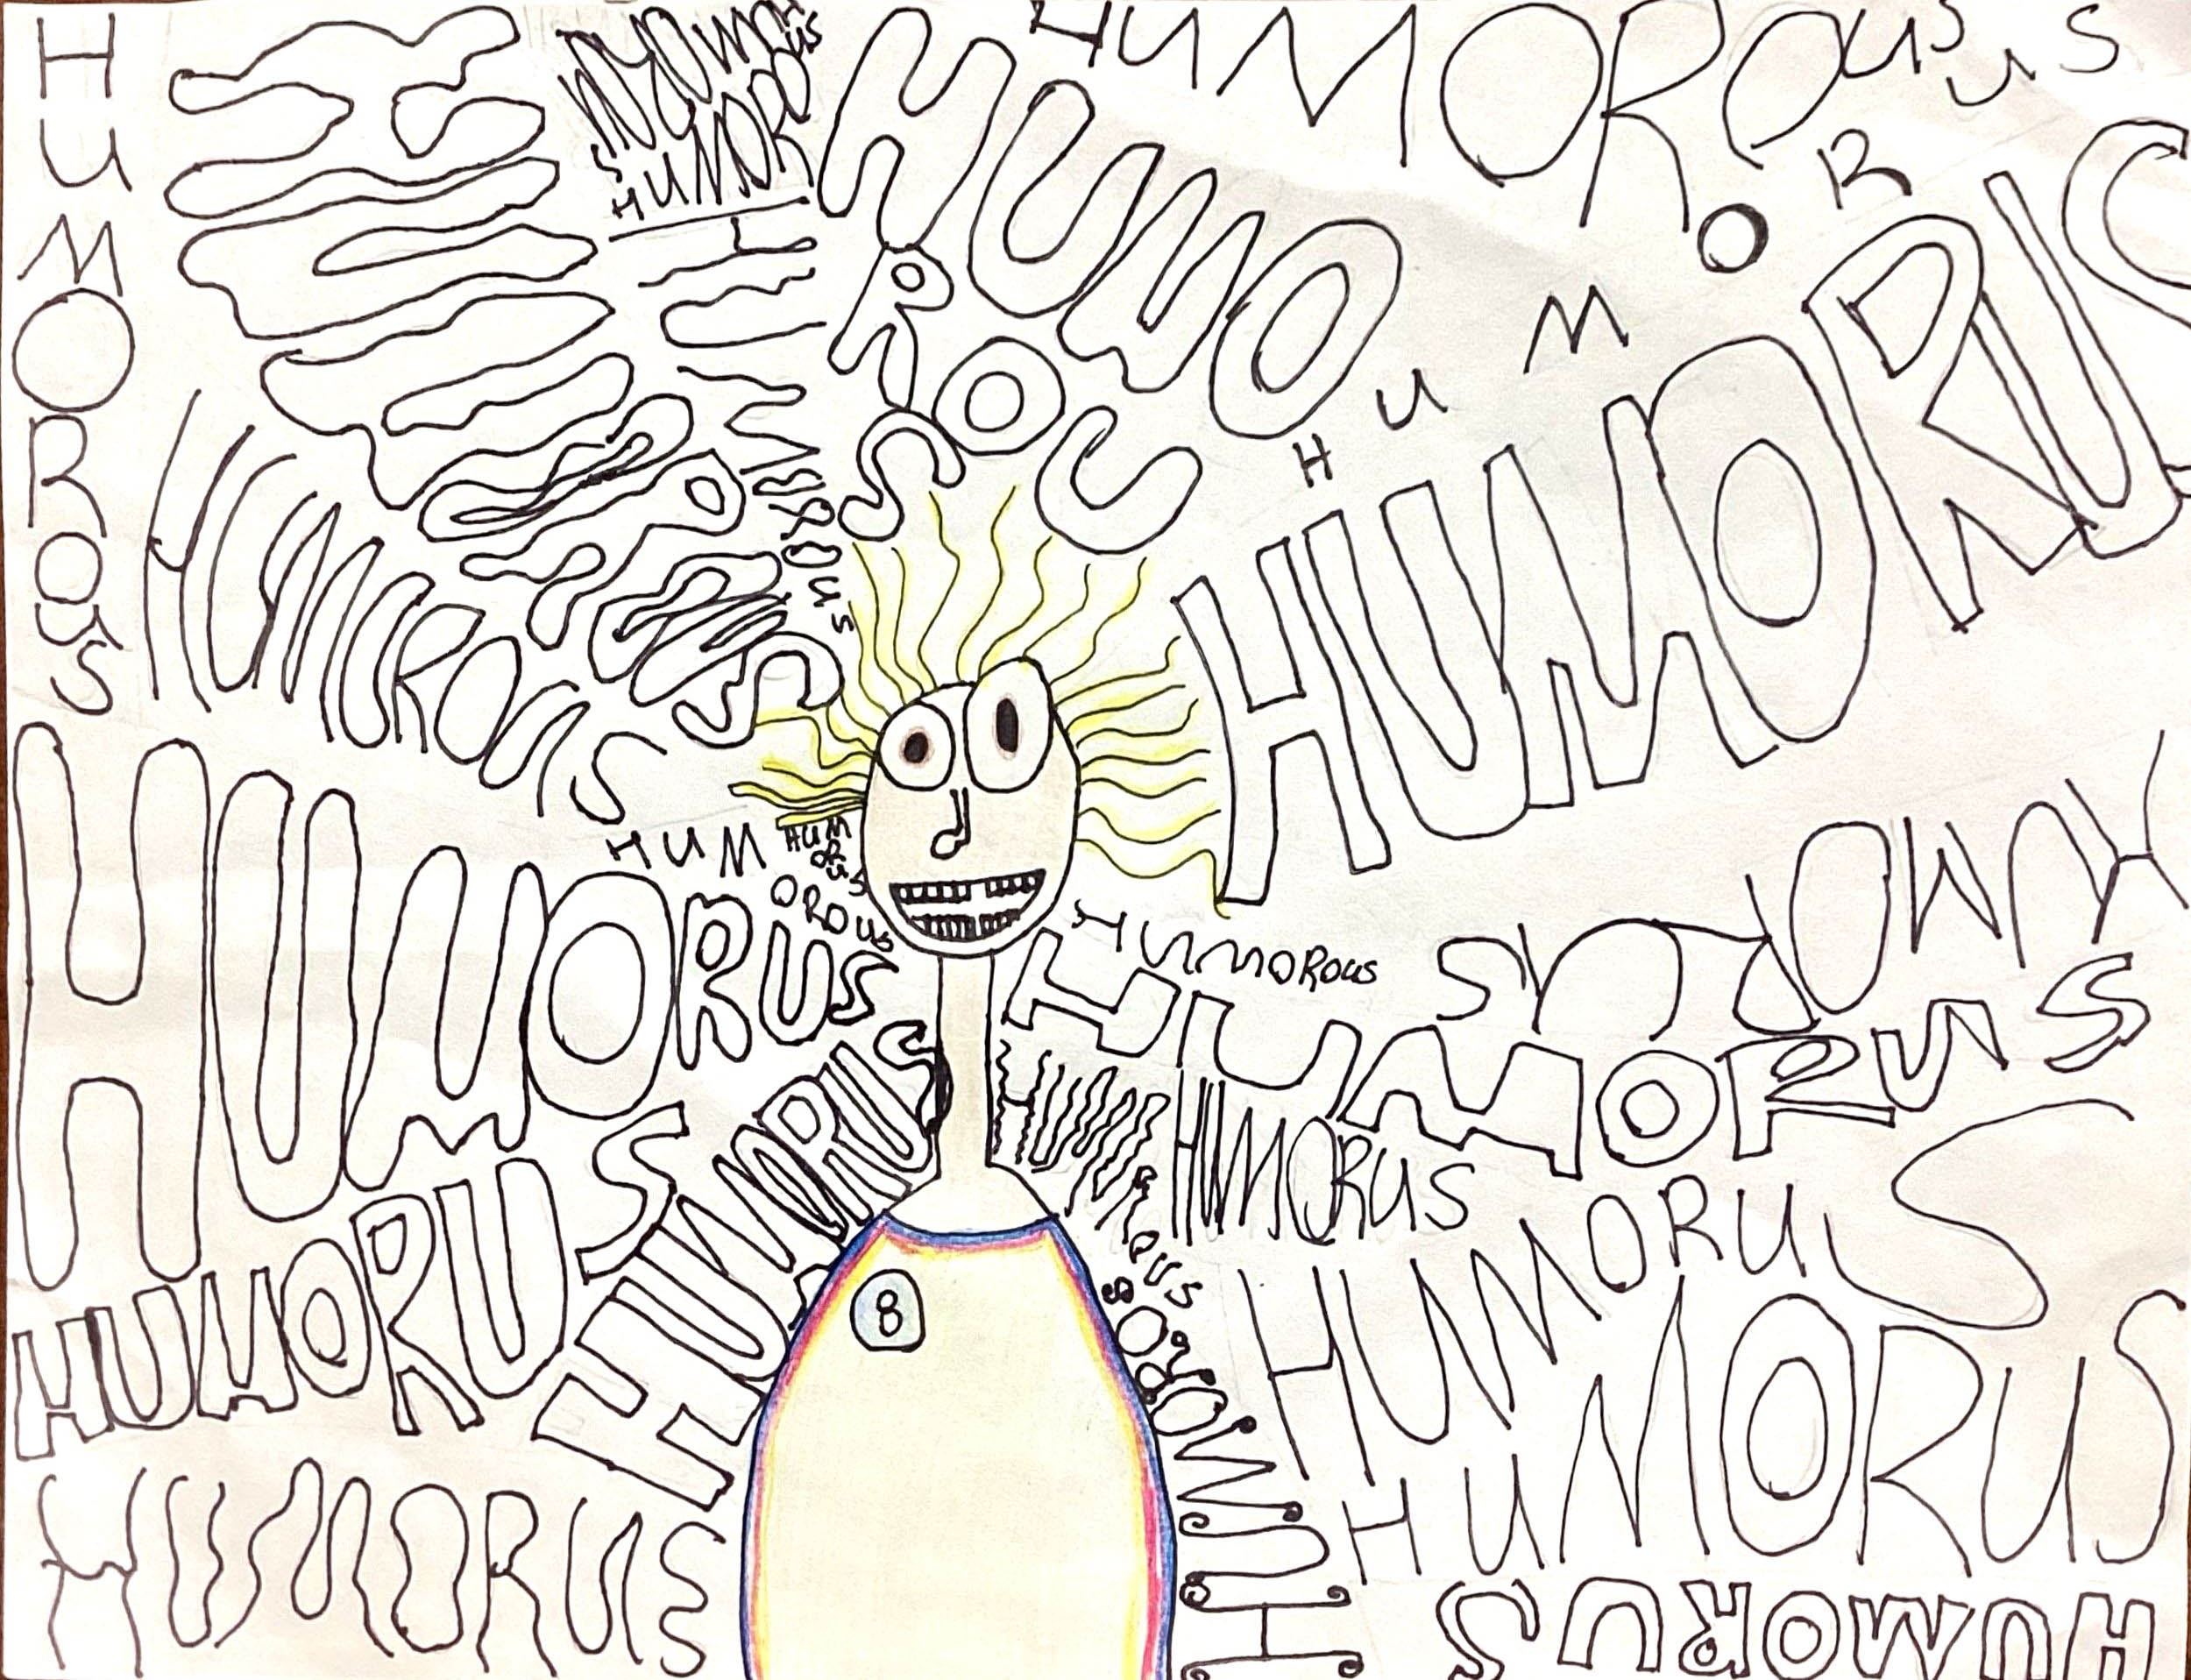 HUMOROUS
HUMOROUS
HUMOROUS
HUMOROUS
HUMOROUS
HUMOROUS
HUMORUS
HUMOROUS
HUMOROUS
HUMORUS
HUMOROUS
HUM
OR
US
HUMOROUS
HUMOROUS
HUMORUS
HUMORUS
HUMORUS
HUMORUS
HUMORUS
HUMORUS
HUMOROUS
HUMORUS
8
HUMORUS
HUMOROUS
HUMORUS
HUMORUS